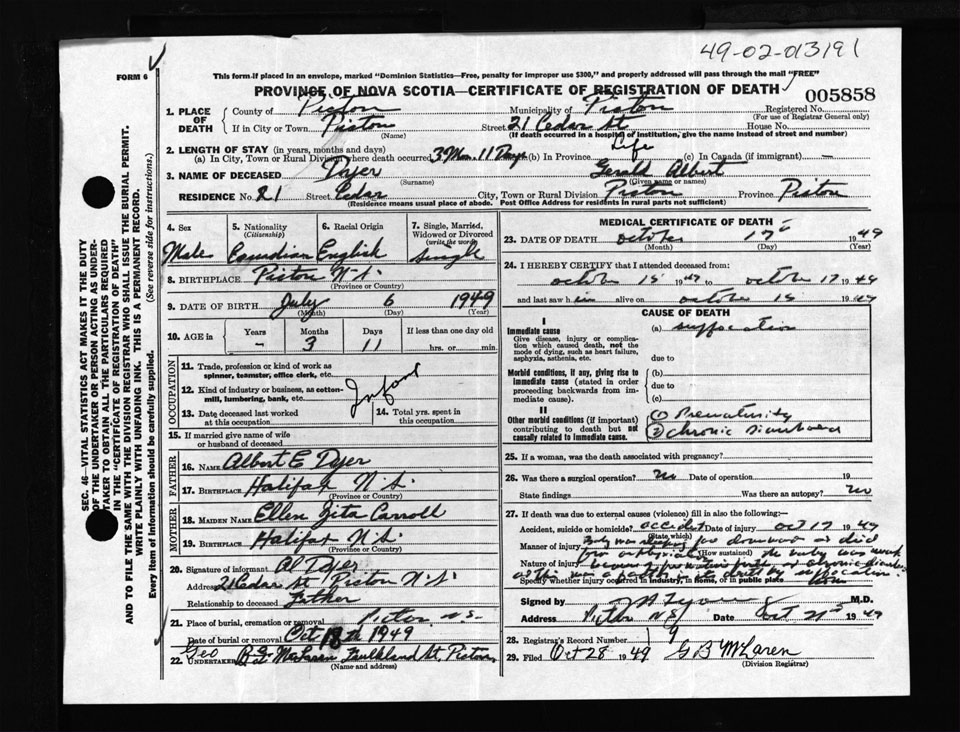 49-02-013191
FORM 6
This form if placed in an envelope, marked "Dominion Statistics—Free, penalty for improper use $300," and properly addressed will pass through the mail "FREE"
PROVINCE OF NOVA SCOTIA—CERTIFICATE OF REGISTRATION OF DEATH
005858
1. PLACE OF DEATH
County of Pictou
Municipality of Pictou
Registered No.
(For use of Registrar General only)
If in City or Town Pictou
(Name)
Street 21 Cedar St
House No.
(If death occurred in a hospital or institution, give the name instead of street and number)
2. LENGTH OF STAY (in years, months and days)
(a) In City, Town or Rural Division where death occurred 3 Mon. 11 Days (b) In Province Life (c) In Canada (if immigrant) —
3. NAME OF DECEASED Dyer Gerald Albert
(Surname) (Given name or names)
RESIDENCE No. 21 Street Cedar City, Town or Rural Division Pictou Province Pictou
(Residence means usual place of abode. Post Office Address for residents in rural parts not sufficient)
4. Sex
Male
5. Nationality
(Citizenship)
Canadian
6. Racial Origin
English
7. Single, Married, Widowed or Divorced
(write the word)
Single
8. BIRTHPLACE Pictou N.S.
(Province or Country)
9. DATE OF BIRTH July 6 1949
(Month) (Day) (Year)
10. AGE in
Years Months Days If less than one day old
- 3 11 hrs. or min.
OCCUPATION
11. Trade, profession or kind of work as spinner, teamster, office clerk, etc.
12. Kind of industry or business, as cotton-mill, lumbering, bank, etc.
Infant
13. Date deceased last worked at this occupation
14. Total yrs. spent in this occupation
15. If married give name of wife or husband of deceased
FATHER
16. NAME Albert E Dyer
17. BIRTHPLACE Halifax N.S.
(Province or Country)
MOTHER
18. MAIDEN NAME Ellen Zita Carroll
19. BIRTHPLACE Halifax N.S.
(Province or Country)
20. Signature of informant Al Dyer
Address 21 Cedar St Pictou N.S.
Relationship to deceased Father
21. Place of burial, cremation or removal Pictou N.S.
Date of burial or removal Oct 18th 1949
22. UNDERTAKER Geo McLaren Faulkland St, Pictou
(Name and address)
MEDICAL CERTIFICATE OF DEATH
23. DATE OF DEATH October 17 1949
(Month) (Day) (Year)
24. I HEREBY CERTIFY that I attended deceased from:
October 15 1949 to October 17 1949
and last saw him alive on October 15 1949
CAUSE OF DEATH
I
Immediate cause
Give disease, injury or complication which caused death, not the mode of dying, such as heart failure, asphyxia, asthenia, etc.
(a) suffocation
due to
Morbid conditions, if any, giving rise to immediate cause (stated in order proceeding backwards from immediate cause).
(b)
due to
(c)
II
Other morbid conditions (if important) contributing to death but not causally related to immediate cause.
(1) Prematurity
(2) chronic
25. If a woman, was the death associated with pregnancy?
26. Was there a surgical operation? No Date of operation 19
State findings Was there an autopsy? No
27. If death was due to external causes (violence) fill in also the following:—
Accident, suicide or homicide? accident Date of injury Oct 17 1949
(State which)
Manner of injury
(How sustained)
Nature of injury
Specify whether injury occurred in industry, in home, or in public place home
Signed by M.D.
Address Pictou N.S. Date Oct 21 1949
28. Registrar's Record Number 19
29. Filed Oct 28 1949 G B McLaren
(Division Registrar)
SEC. 46—VITAL STATISTICS ACT MAKES IT THE DUTY
OF THE UNDERTAKER OR PERSON ACTING AS UNDER-
TAKER TO OBTAIN ALL THE PARTICULARS REQUIRED
IN THE "CERTIFICATE OF REGISTRATION OF DEATH"
AND TO FILE THE SAME WITH THE DIVISION REGISTRAR WHO SHALL ISSUE THE BURIAL PERMIT.
WRITE PLAINLY WITH UNFADING INK. THIS IS A PERMANENT RECORD.
Every item of information should be carefully supplied. (See reverse side for instructions.)